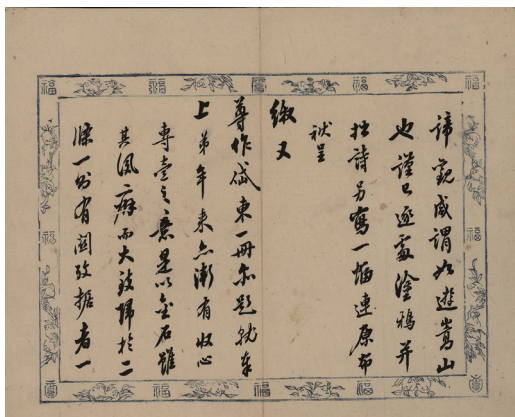 諦觀咸謂如遊嵩山
也謹已逐處塗鴉并
拙詩另寫一幅連原布
袱呈
繳又
尊作岱東一冊亦題就奉
上弟年來亦漸有收心
專壹之意是以金石雖
其夙癖而大致歸於二
條一則有關攷據者一